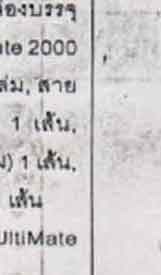 องบรรจุ
ate 2000
ล่ม, สาย
1 เส้น,
ม) 1 เส้น,
เส้น
UltiMate